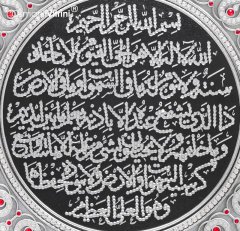 بسم الله الرحمن الرحيم
الله لا إله إلا هو الحي القيوم لا تأخذه
سنة ولا نوم له ما في السموات وما في الأرض من
ذا الذي يشفع عنده إلا بإذنه يعلم ما بين أيديهم
وما خلفهم ولا يحيطون بشيء من علمه إلا بما شاء وسع
كرسيه السموات والأرض ولا يؤده حفظهما
وهو العلي العظيم